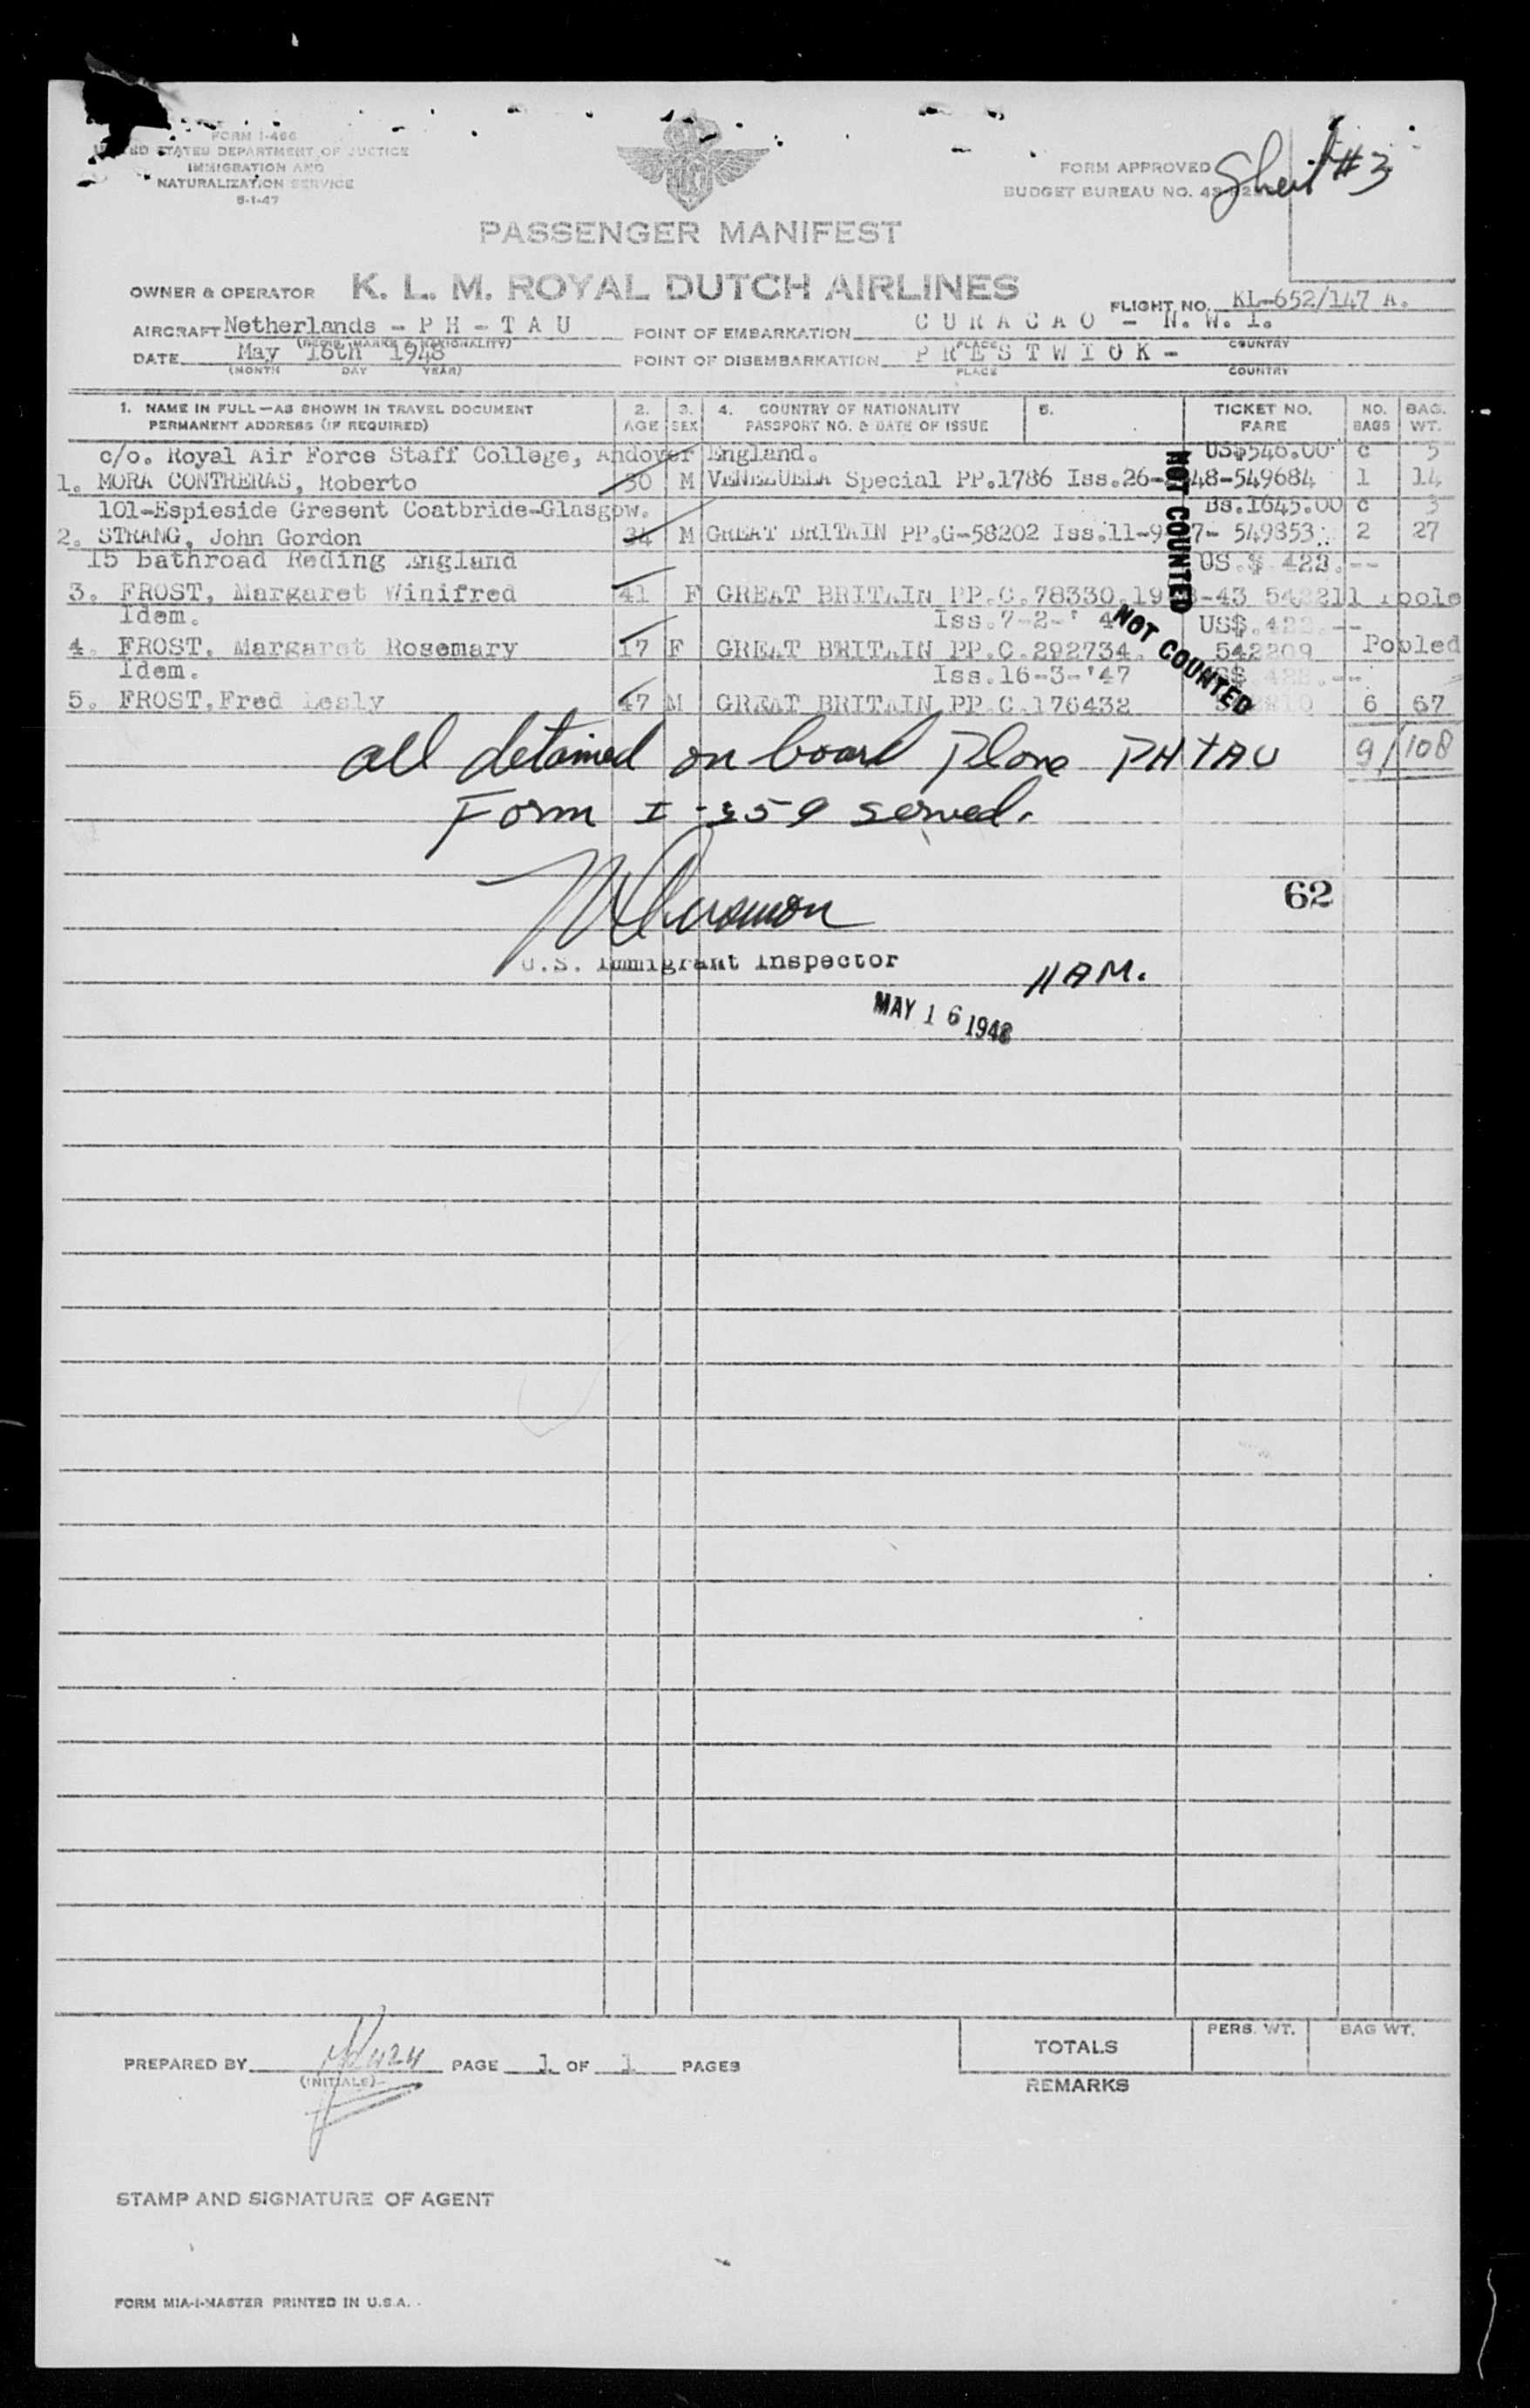 FORM I-466
UNITED STATES DEPARTMENT OF JUSTICE
IMMIGRATION AND
NATURALIZATION SERVICE
5-1-47
FORM APPROVED
BUDGET BUREAU NO.
Sheet #3
PASSENGER MANIFEST
OWNER & OPERATOR K. L. M. ROYAL DUTCH AIRLINES
FLIGHT NO. KL-652/147 A.
AIRCRAFT Netherlands - P H - T A U POINT OF EMBARKATION C U R A C A O - N. W. I.
(REGIS. MARKS & NATIONALITY) PLACE COUNTRY
DATE May 16th 1948 POINT OF DISEMBARKATION P R E S T W I C K -
(MONTH DAY YEAR) PLACE COUNTRY
1. NAME IN FULL—AS SHOWN IN TRAVEL DOCUMENT 2. 3. 4. COUNTRY OF NATIONALITY 5. TICKET NO. NO. BAG.
PERMANENT ADDRESS (IF REQUIRED) AGE SEX PASSPORT NO. & DATE OF ISSUE FARE BAGS WT.
c/o. Royal Air Force Staff College, Andover England. US$546.00 c 5
1. MORA CONTRERAS, Roberto 30 M VENEZUELA Special PP.1786 Iss.26- 48-549684 1 14
101-Espieside Gresent Coatbride-Glasgow. Bs.1645.00 c 3
2. STRANG, John Gordon 34 M GREAT BRITAIN PP.G-58202 Iss.11-9 7- 549853 2 27
15 bathroad Reding England US.$ 422.--
3. FROST, Margaret Winifred 41 F GREAT BRITAIN PP.C.78330.19 -43 542211 Poole
Idem. Iss.7-2-' 4 US$.422.--
4. FROST, Margaret Rosemary 17 F GREAT BRITAIN PP.C.292734. 542209 Pooled
Idem. Iss.16-3-'47 $.422.--
5. FROST,Fred Lesly 47 M GREAT BRITAIN PP.C.176432 6 67
NOT COUNTED
NOT COUNTED
all detained on board Plane PHTAU 9/108
Form I-259 served.
62
U.S. Immigrant Inspector
11 AM.
MAY 16 1948
PREPARED BY PAGE 1 OF 1 PAGES
(INITIALS)
TOTALS PERS. WT. BAG WT.
REMARKS
STAMP AND SIGNATURE OF AGENT
FORM MIA-1-MASTER PRINTED IN U.S.A.